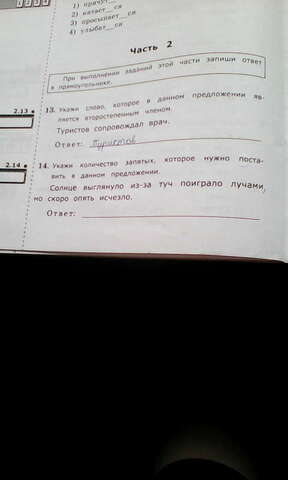 1) прячут__
2) катает__ся
3) просыпает__ся
4) улыбат__ся
Часть 2
При выполнении заданий этой части запиши ответ
в прямоугольнике.
2.13
13. Укажи слово, которое в данном предложении яв-
ляется второстепенным членом.
Туристов сопровождал врач.
Ответ: Туристов
2.14
14. Укажи количество запятых, которое нужно поста-
вить в данном предложении.
Солнце выглянуло из-за туч поиграло лучами,
но скоро опять исчезло.
Ответ: